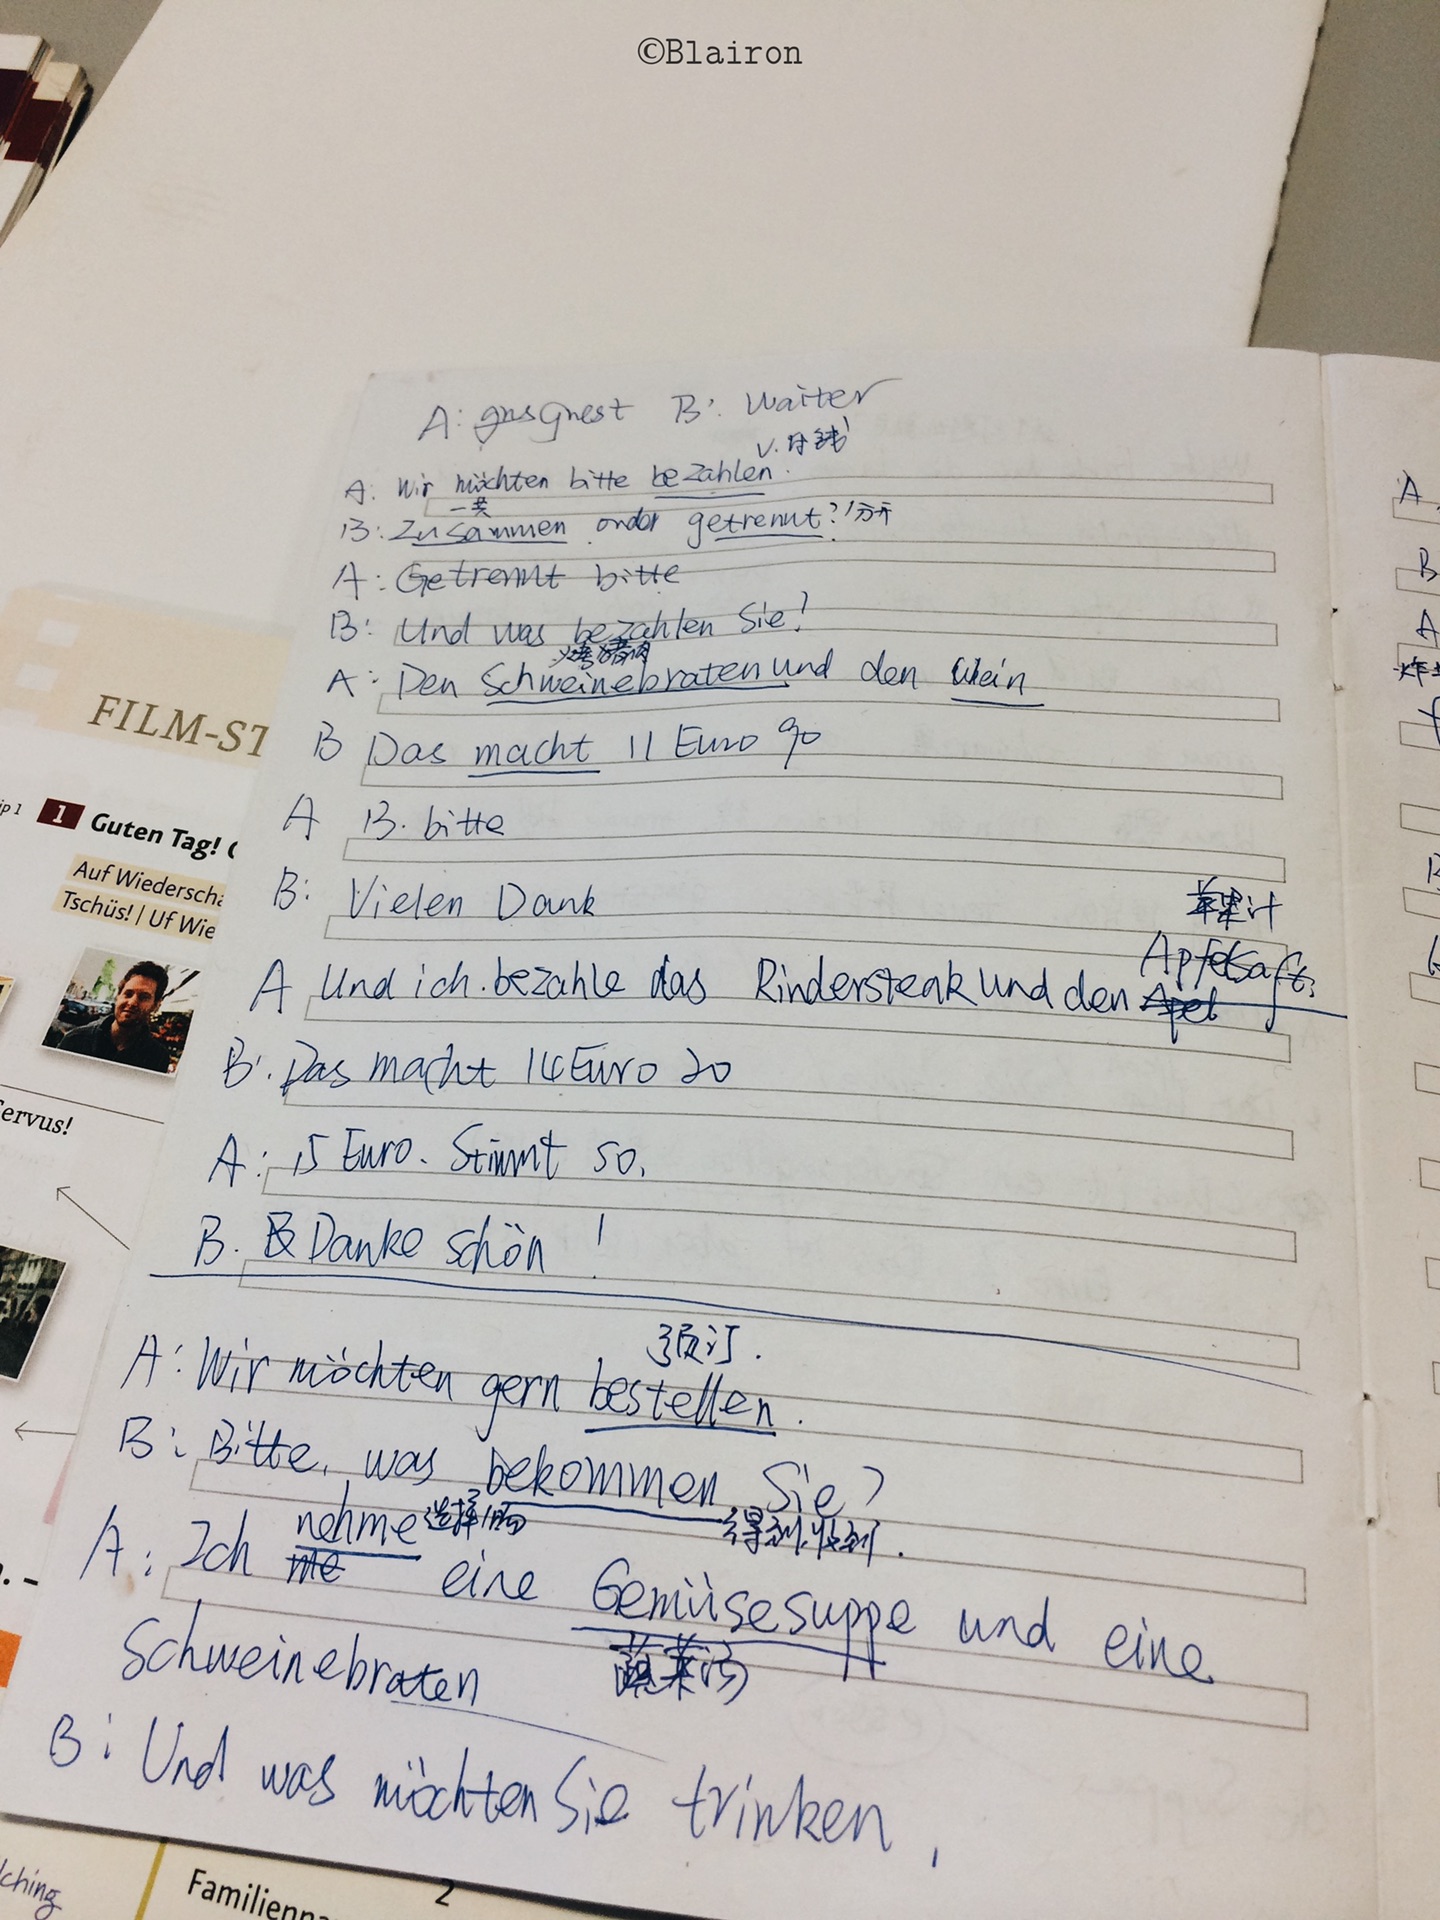 ©Blairon
A: Guest B: Waiter
v.付钱
A: Wir möchten bitte bezahlen.
一共
B: Zusammen onder getrennt? 分开
A: Getrennt bitte
B: Und was bezahlen Sie?
烤猪肉
A: Den Schweinebraten und den Wein
B Das macht 11 Euro 90
A B. bitte
B: Vielen Dank
苹果汁
Apfelsaft.
A Und ich bezahle das Rindersteak und den Apel
B: Das macht 14 Euro 20
A: 15 Euro. Stimmt so.
B. Danke schön!
预订.
A: Wir möchten gern bestellen.
B: Bitte, was bekommen Sie?
得到,收到.
A: Ich nehme eine Gemüsesuppe und eine
蔬菜汤
Schweinebraten
B: Und was möchten Sie trinken.
FILM-ST
ip 1
1 Guten Tag!
Auf Wiedersch
Tschüs! | Uf Wie
ervus!
Familienna
2
A
B
A